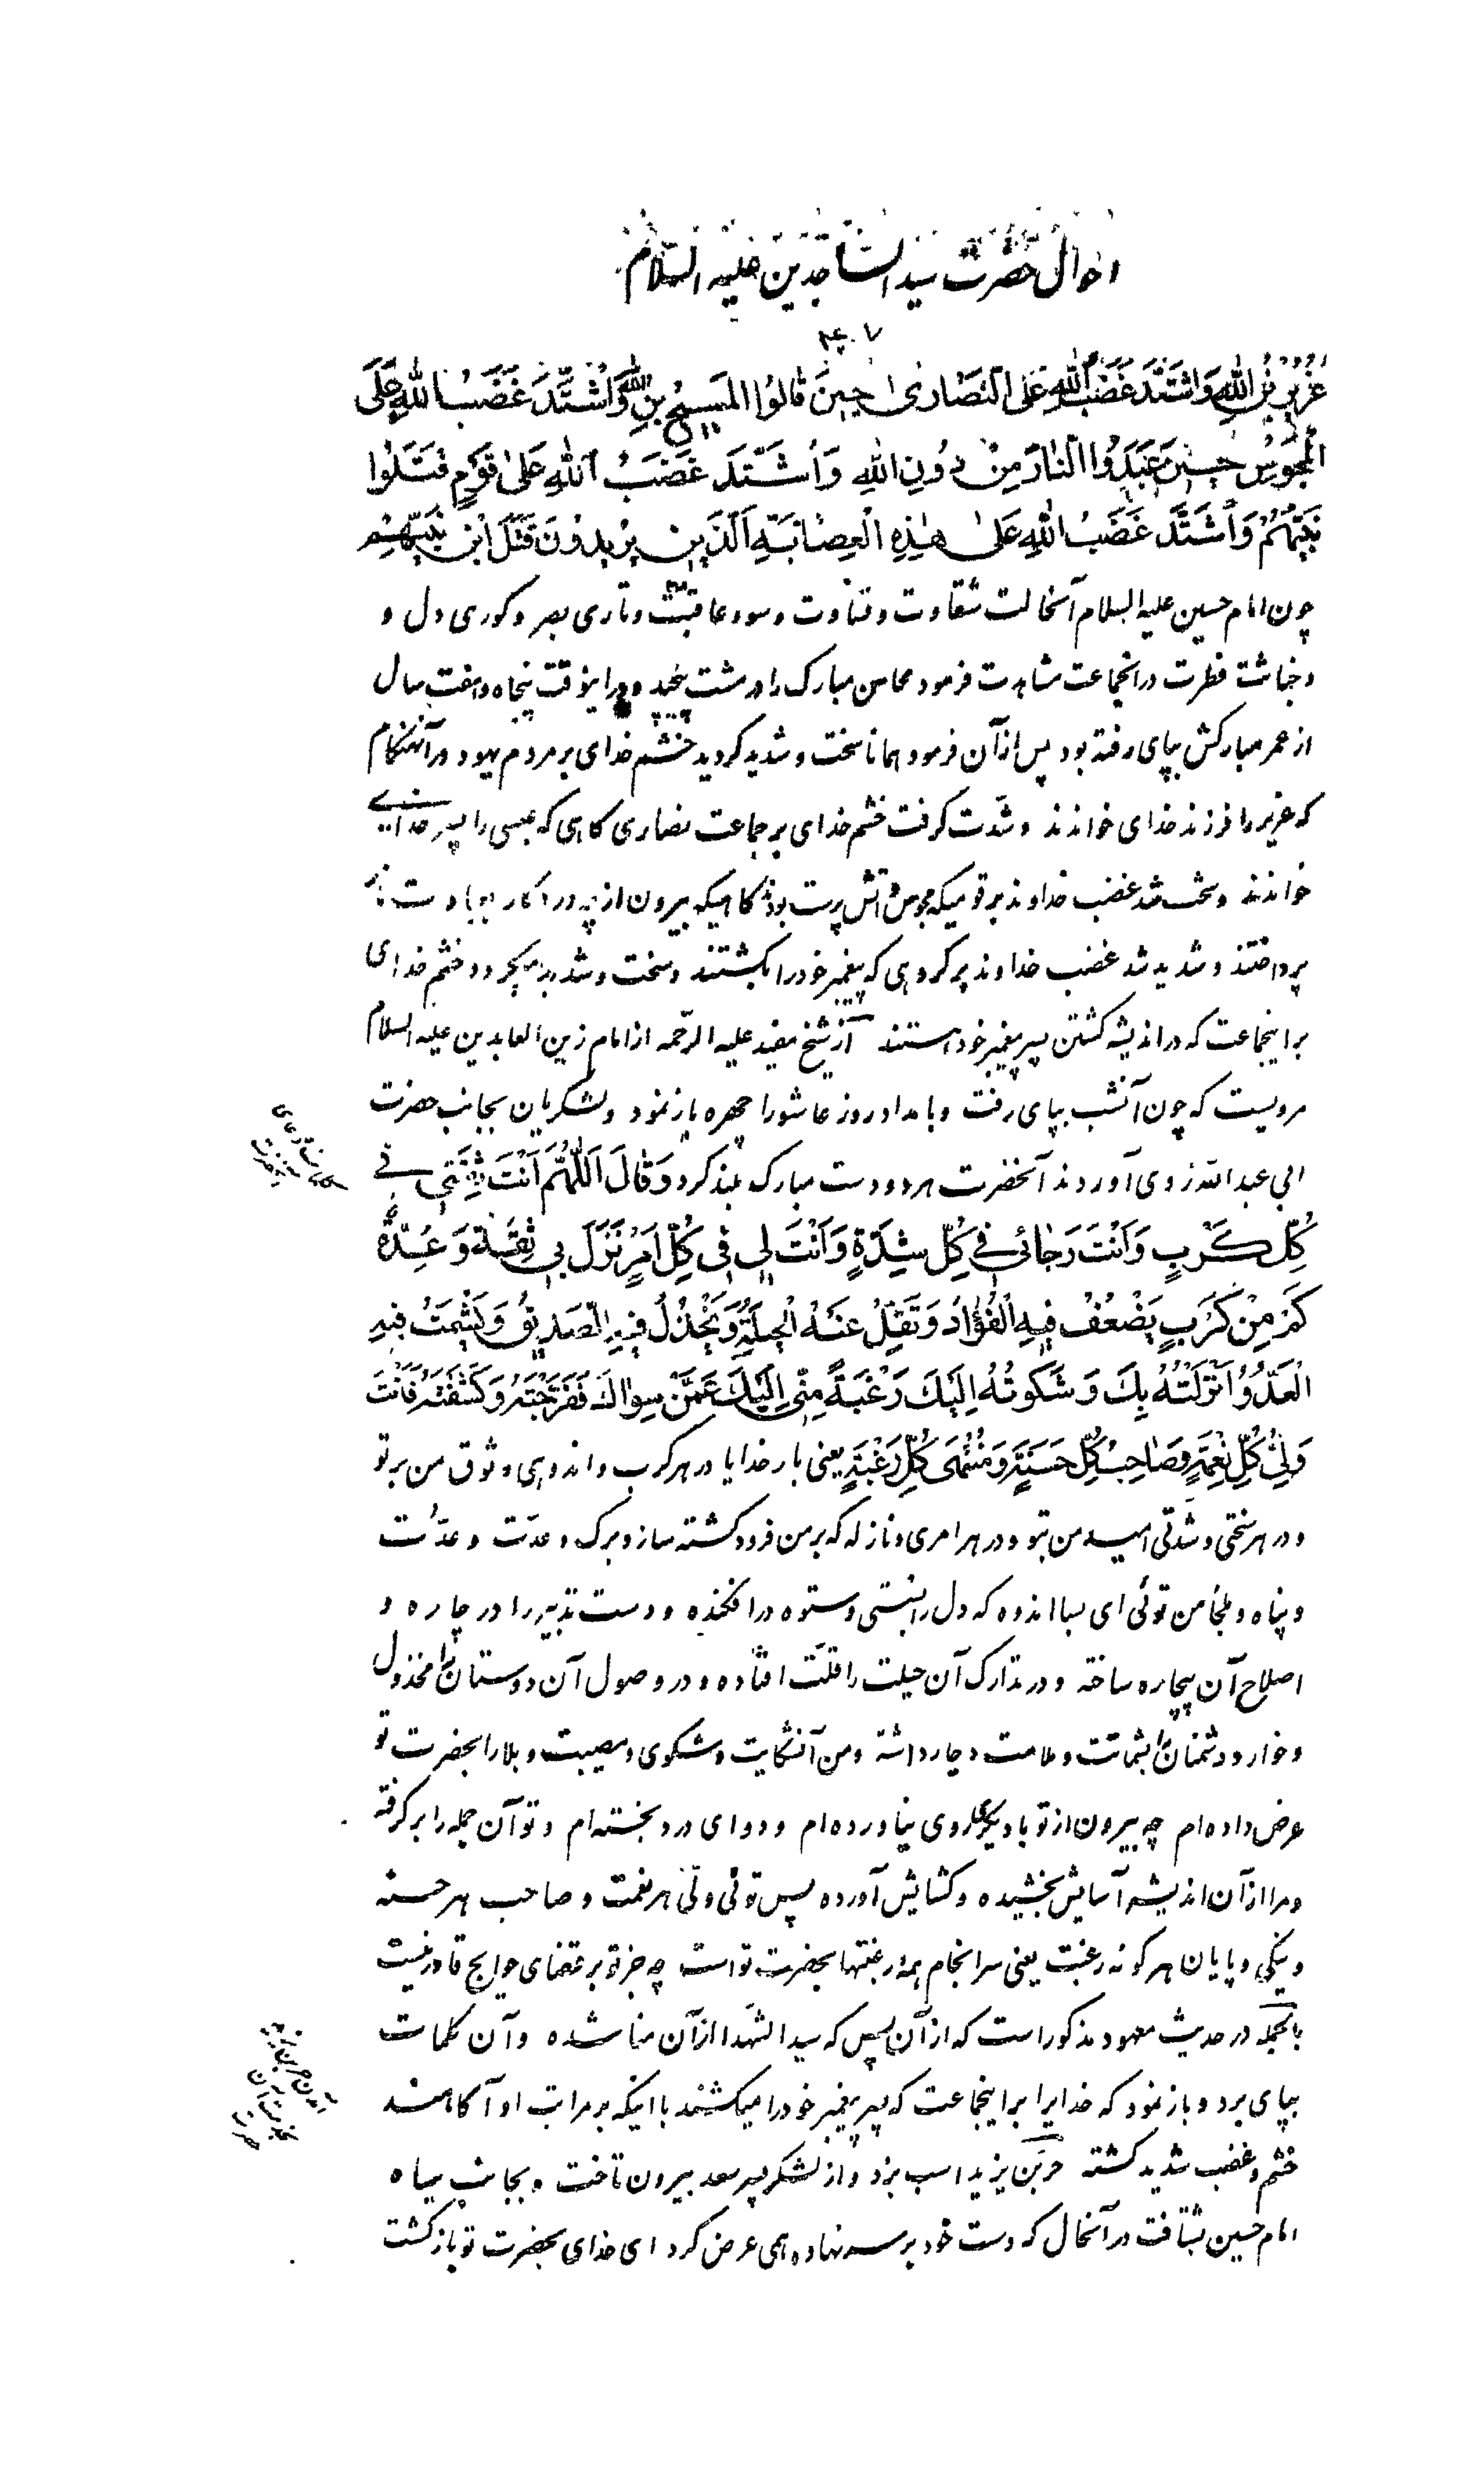 احوال حضرت سید الساجدین علیه السلام
۴۰۷
عُزَیْرُ بْنُ اللهِ وَاشْتَدَّ غَضَبُ اللهِ عَلَی النَّصاریٰ حینَ قالُوا المَسیحُ بنُ اللهِ وَاشْتَدَّ غَضَبُ اللهِ عَلَی
المَجُوسِ حینَ عَبَدُوا النّارَ مِنْ دُونِ اللهِ وَاشْتَدَّ غَضَبُ اللهِ عَلیٰ قَوْمٍ قَتَلُوا
نَبِیَّهُمْ وَاشْتَدَّ غَضَبُ اللهِ عَلیٰ هٰذِهِ الْعِصابَةِ الَّذینَ یُریدُونَ قَتْلَ ابْنِ نَبِیِّهِمْ
چون امام حسین علیه السلام آنحالت شقاوت و قساوت و سوء عاقبت و تاری بصر و کوری دل و
و خباثت فطرت در آنجماعت مشاهدت فرمود محاسن مبارک را در مشت پیچید و در اینوقت پنجاه و هفت سال
از عمر مبارکش بپای رفته بود پس از آن فرمود همانا سخت و شدید گردید خشم خدای بر مردم یهود در آنهنگام
که عزیر را فرزند خدای خواندند و شدّت گرفت خشم خدای بر جماعت نصاری گاهی که عیسی را پسر خدای
خواندند و سخت شد غضب خداوند بر قومیکه مجوس و آتش پرست بودند گاهیکه بیرون از پروردگار بعبادت نار
پرداختند و شدید شد غضب خداوند بر گروهی که پیغمبر خود را بکشتند و سخت و شدید میگردد خشم خدای
بر اینجماعت که در اندیشه کشتن پسر پیغمبر خود هستند از شیخ مفید علیه الرّحمه از امام زین العابدین علیه السلام
مرویست که چون آنشب بپای رفت و بامداد روز عاشورا چهره باز نمود و لشکریان بجانب حضرت
ابی عبد الله روی آوردند آنحضرت هر دو دست مبارک بلند کرد وَ قالَ اَللّٰهُمَّ اَنْتَ ثِقَتی فی
کُلِّ کَرْبٍ وَ اَنْتَ رَجائی فی کُلِّ شِدَّةٍ وَ اَنْتَ لی فی کُلِّ اَمْرٍ نَزَلَ بی ثِقَةٌ وَ عُدَّةٌ
کَمْ مِنْ کَرْبٍ یَضْعُفُ فیهِ الْفُؤادُ وَ تَقِلُّ عَنْهُ الْحیلَةُ وَ یَخْذُلُ فیهِ الصَّدیقُ وَ یَشْمَتُ فیهِ
الْعَدُوُّ اَنْزَلْتُهُ بِکَ وَ شَکَوْتُهُ اِلَیْکَ رَغْبَةً مِنّی اِلَیْکَ عَمَّنْ سِواکَ فَفَرَّجْتَهُ وَ کَشَفْتَهُ فَاَنْتَ
وَلِیُّ کُلِّ نِعْمَةٍ وَ صاحِبُ کُلِّ حَسَنَةٍ وَ مُنْتَهی کُلِّ رَغْبَةٍ یعنی بار خدایا در هر کرب و اندوهی وثوق من بر تو
و در هر سختی و شدتی امید من بتو و در هر امری و نازله که بر من فرود گشته ساز و برک و عدّت و عدّت
و پناه و ملجأ من توئی ای بسا اندوه که دل را بسستی و ستوه در افکنده و دست تدبیر را در چاره و
اصلاح آن بیچاره ساخته و در تدارک آن حیلت را قلّت افتاده و در وصول آن دوستان را مخذول
و خوار و دشمنان را بشماتت و ملامت دچار داشته و من آنشکایت و شکوی و مصیبت و بلا را بحضرت تو
عرض داده‌ام چه بیرون از تو با دیگری روی نیاورده‌ام و دوای درد بجسته‌ام و تو آن جمله را بر گرفته
و مرا از آن اندیشه آسایش بخشیده و گشایش آورده پس توئی ولیّ هر نعمت و صاحب هر حسنه
و نیکی و پایان هر گونه رغبت یعنی سرانجام همه رغبتها بحضرت تو است چه جز تو بر قضای حوایج قادر نیست
بالجمله در حدیث معهود مذکور است که از آن پس که سید الشهدا از آن مناشده و آن کلمات
بپای برد و باز نمود که خدایرا بر اینجماعت که پسر پیغمبر خود را میکشند با اینکه بر مراتب او آگاهند
خشم و غضب شدید گشته حرّ بن یزید اسب بزد و از لشکر پسر سعد بیرون تاخت و بجانب سپاه
امام حسین بشتافت در آنحال که دست خود بر سر نهاده همی عرض کرد ای خدای بحضرت تو بازگشت